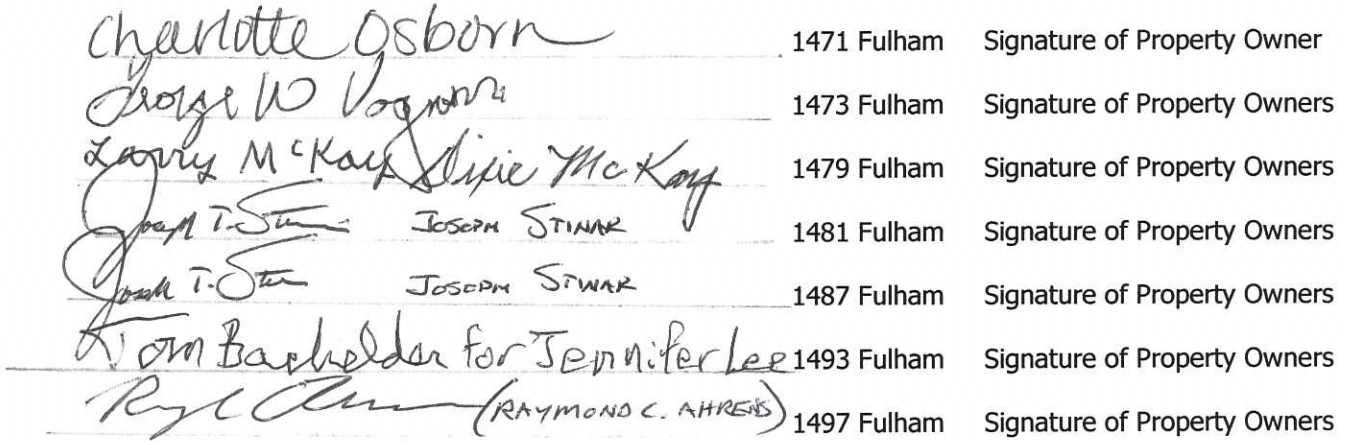 Charlotte Osborn 1471 Fulham Signature of Property Owner
George W 1473 Fulham Signature of Property Owners
Larry McKay Dixie McKay 1479 Fulham Signature of Property Owners
Joseph T. JOSEPH STINAR 1481 Fulham Signature of Property Owners
Joseph T. JOSEPH STINAR 1487 Fulham Signature of Property Owners
Tom Bachelder for Jennifer Lee 1493 Fulham Signature of Property Owners
(RAYMOND C. AHRENS) 1497 Fulham Signature of Property Owners